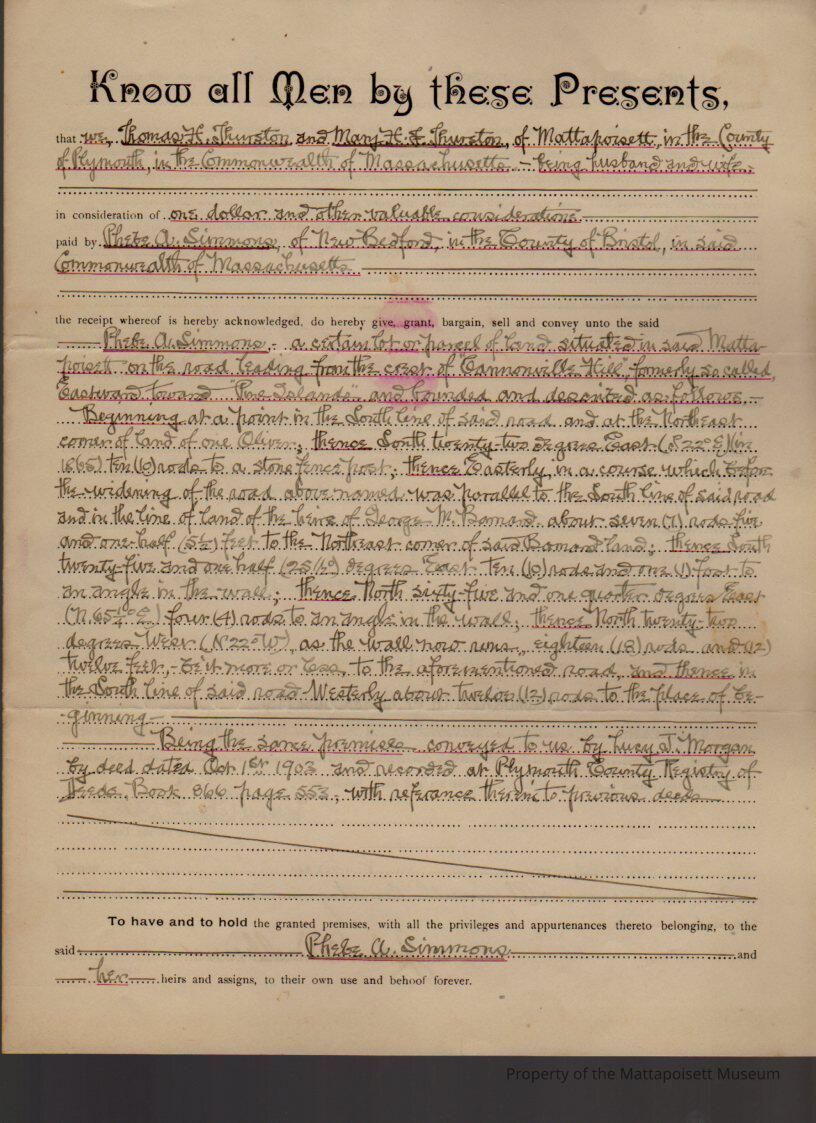 Know all Men by these Presents,
that we, Thomas H. Thurston and Mary H. F. Thurston, of Mattapoisett, in the County
of Plymouth, in the Commonwealth of Massachusetts, - being husband and wife,
in consideration of one dollar and other valuable considerations
paid by Phebe A. Simmons, of New Bedford, in the County of Bristol, in said
Commonwealth of Massachusetts
the receipt whereof is hereby acknowledged, do hereby give, grant, bargain, sell and convey unto the said
Phebe A. Simmons, - a certain lot or parcel of land situated in said Matta-
poisett on the road leading from the crest of "Cannonville Hill," formerly so called,
Eastward toward "Pine Islands" and bounded and described as follows, -
Beginning at a point in the South line of said road and at the Northeast
corner of land of one Oliver; thence South twenty-two degrees East (S 22° E) (in
1865) ten (10) rods to a stone fence post; thence Easterly, in a course which before
the widening of the road above named was parallel to the South line of said road
and in the line of land of the heirs of George M. Barnard about seven (7) rods five
and one-half (5½) feet to the Northeast corner of said Barnard land; thence South
twenty-five and one half (25½°) degrees East ten (10) rods and one (1) foot to
an angle in the wall; thence North sixty-five and one quarter degrees East
(N. 65¼° E) four (4) rods to an angle in the wall; thence North twenty-two
degrees West (N 22° W), as the wall now runs, eighteen (18) rods and (12)
twelve feet, - be it more or less, to the aforementioned road, and thence in
the South line of said road Westerly about twelve (12) rods to the place of be-
ginning
Being the same premises conveyed to us by Lucy J. Morgan
by deed dated Oct 1st 1903 and recorded at Plymouth County Registry of
Deeds, Book 866 page 553, with referance therein to previous deeds
To have and to hold the granted premises, with all the privileges and appurtenances thereto belonging, to the
said Phebe A. Simmons and
her heirs and assigns, to their own use and behoof forever.
Property of the Mattapoisett Museum